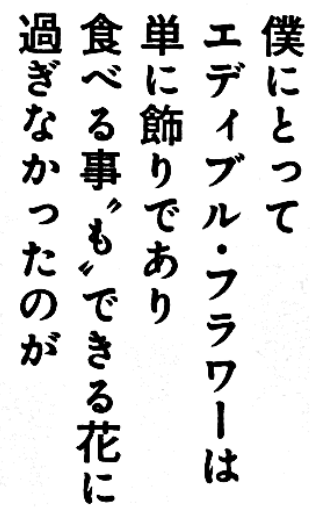 僕にとって
エディブル・フラワーは
単に飾りであり
食べる事〝も〟できる花に
過ぎなかったのが